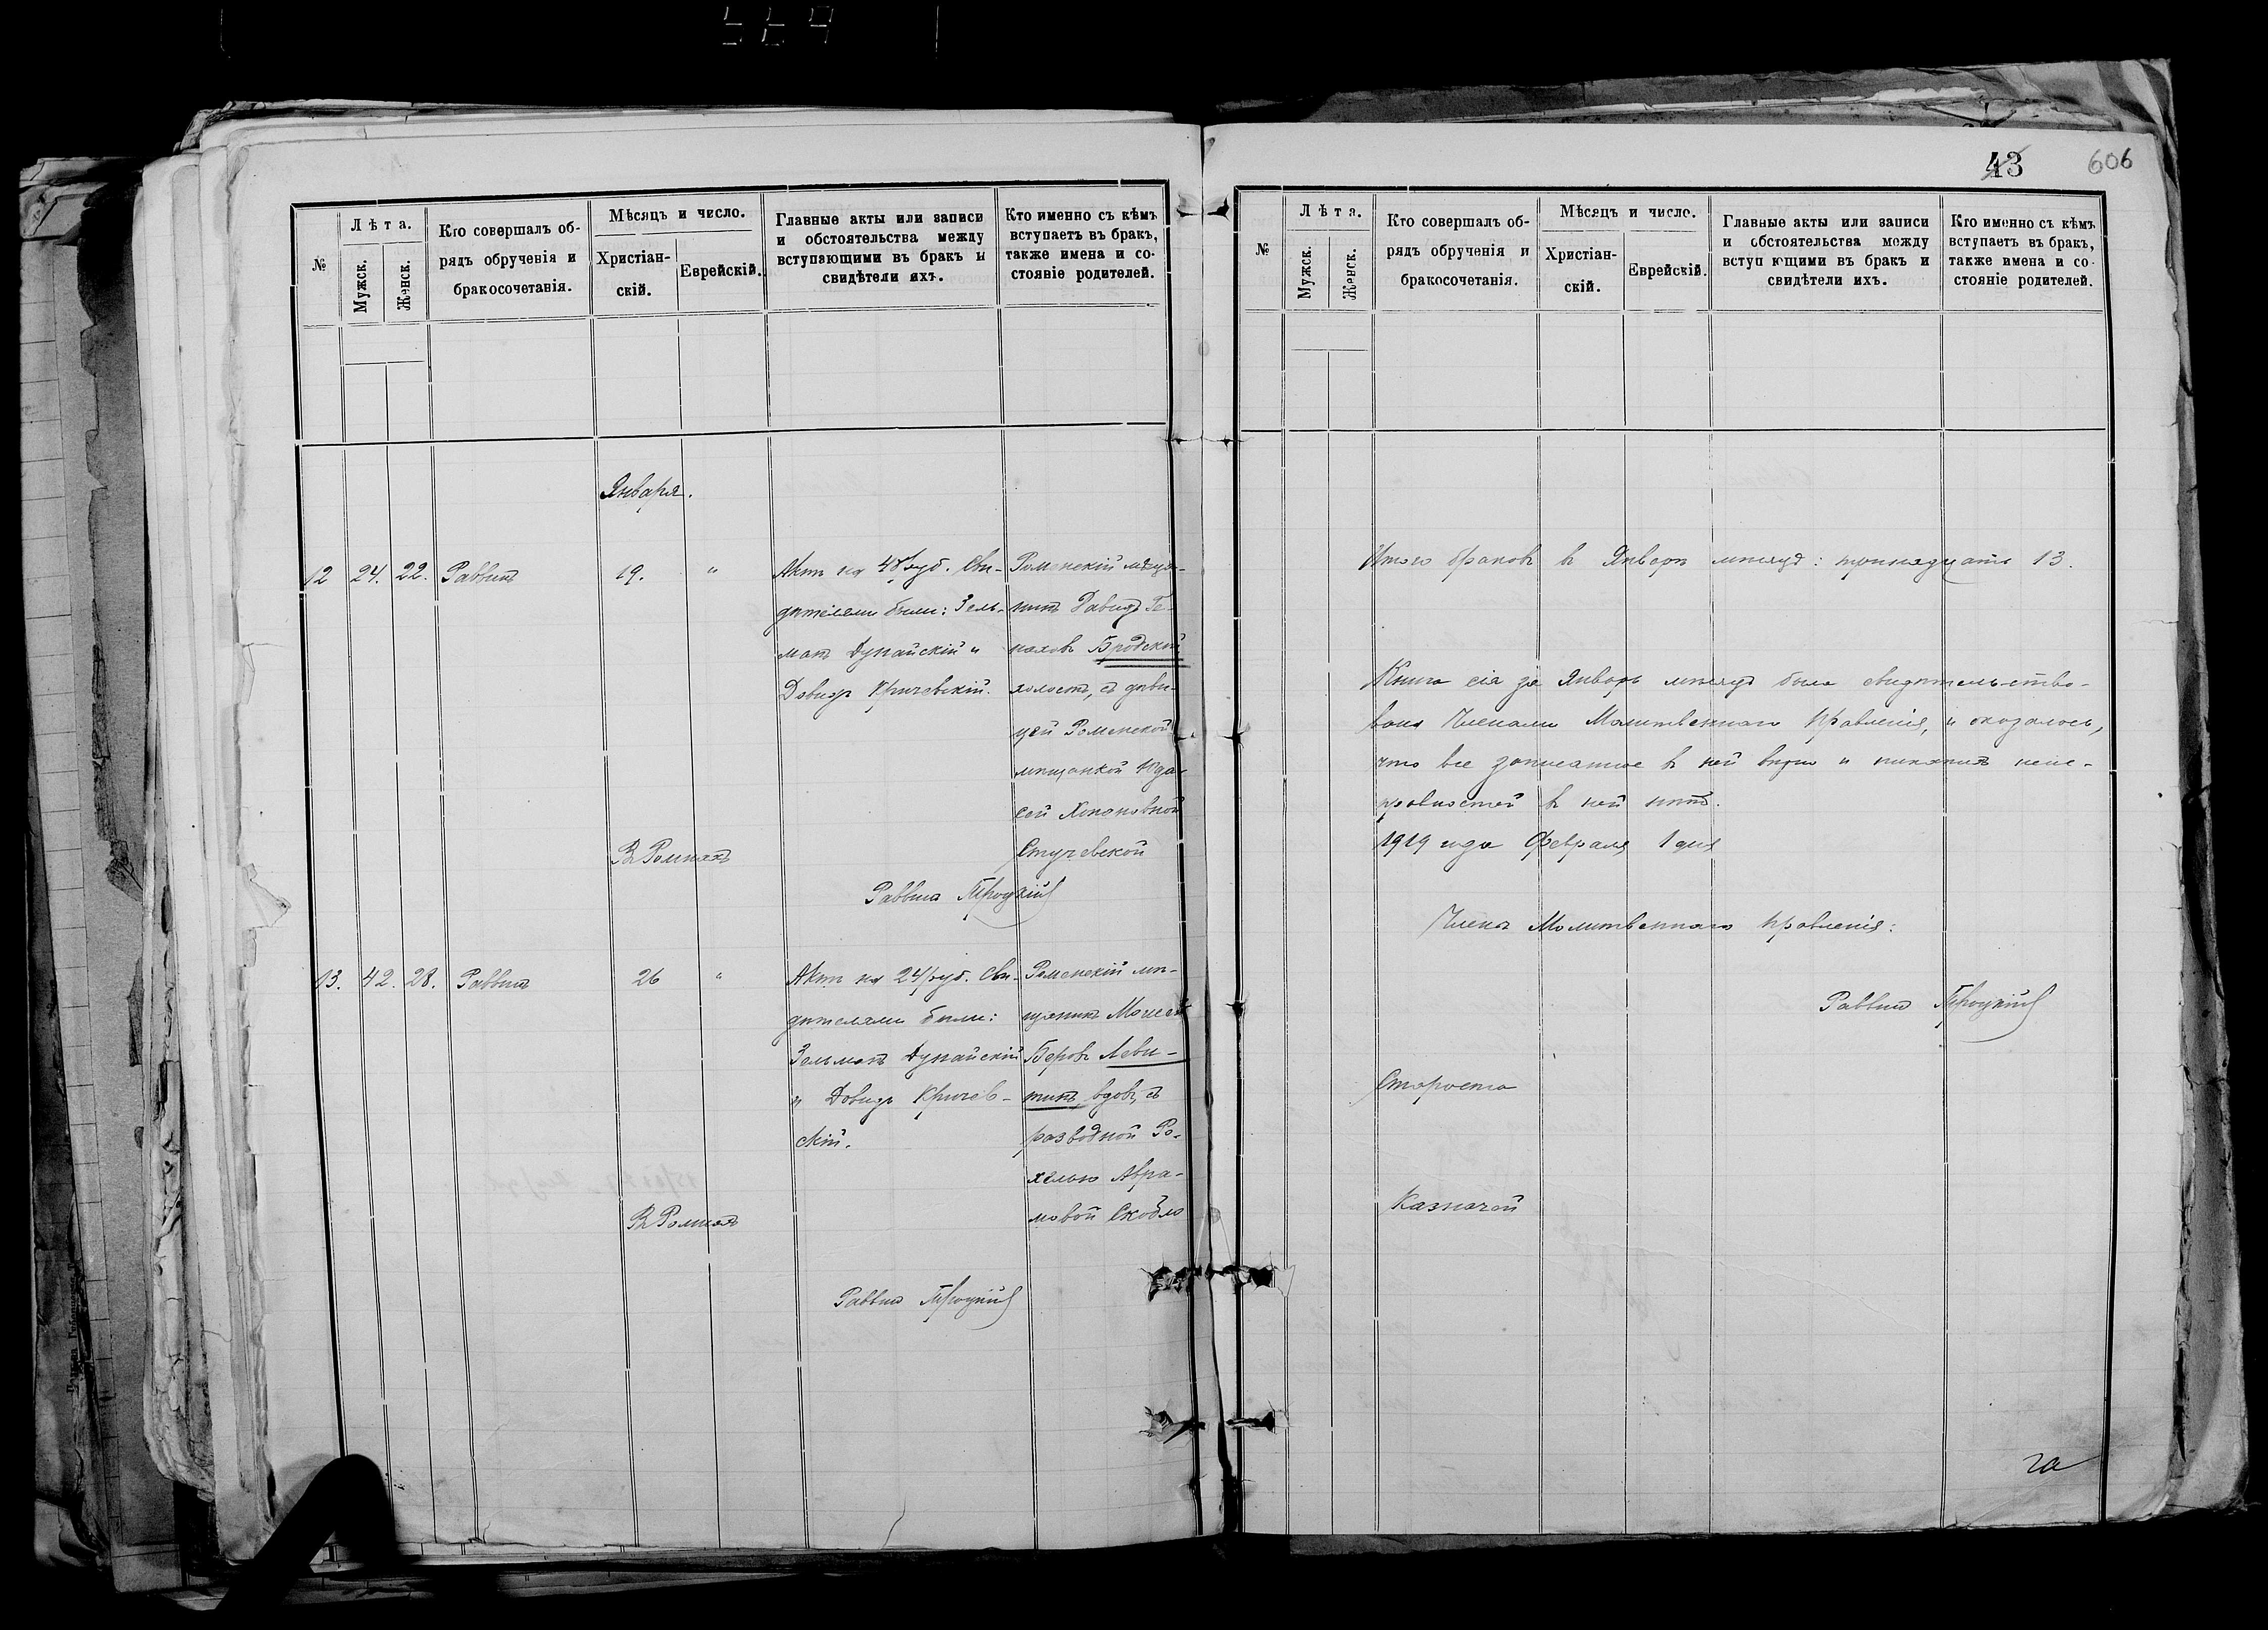 43 606
№
Лѣта.
Мужск.
Женск.
Кто совершалъ об-
рядъ обрученія и
бракосочетанія.
Мѣсяцъ и число.
Христіан-
скій.
Еврейскій.
Главные акты или записи
и обстоятельства между
вступающими въ бракъ и
свидѣтели ихъ.
Кто именно съ кѣмъ
вступаетъ въ бракъ,
также имена и со-
стояніе родителей.
Января.
12 24. 22. Раввинъ 19. "
Актъ на 48 руб. Сви-
дѣтелями были: Зель-
манъ Дунайскій и
Довидъ Кричевскій.
Роменскій мѣща-
нинъ Давидъ Ге-
наховъ Бродскій
холостъ, съ дѣви-
цей Роменской
мѣщанкой
Хононовной
Стучевской
Въ Ромнахъ
Раввинъ Троцкій
13. 42. 28. Раввинъ 26 "
Актъ на 24 руб. Сви-
дѣтелями были:
Зельманъ Дунайскій
и Довидъ Кричев-
скій.
Роменскій мѣ-
щанинъ
Беровъ Леви-
тинъ, вдовъ, съ
разводной Ро-
хелью Абра-
мовой Скобло
Въ Ромнахъ
Раввинъ Троцкій
№
Лѣта.
Мужск.
Женск.
Кто совершалъ об-
рядъ обрученія и
бракосочетанія.
Мѣсяцъ и число.
Христіан-
скій.
Еврейскій.
Главные акты или записи
и обстоятельства между
вступ ющими въ бракъ и
свидѣтели ихъ.
Кто именно съ кѣмъ
вступаетъ въ бракъ,
также имена и со-
стояніе родителей.
Итого браковъ въ Январѣ мѣсяцѣ: тринадцать 13.
Книга сія за Январь мѣсяцъ была свидѣтельство-
вана Членами Молитвеннаго Правленія, и оказалось,
что все записанное въ ней вѣрно и никакихъ неис-
правностей въ ней нѣтъ.
1919 года Февраля 1 дня
Члены Молитвеннаго правленія:
Раввинъ Троцкій
Староста
Казначей